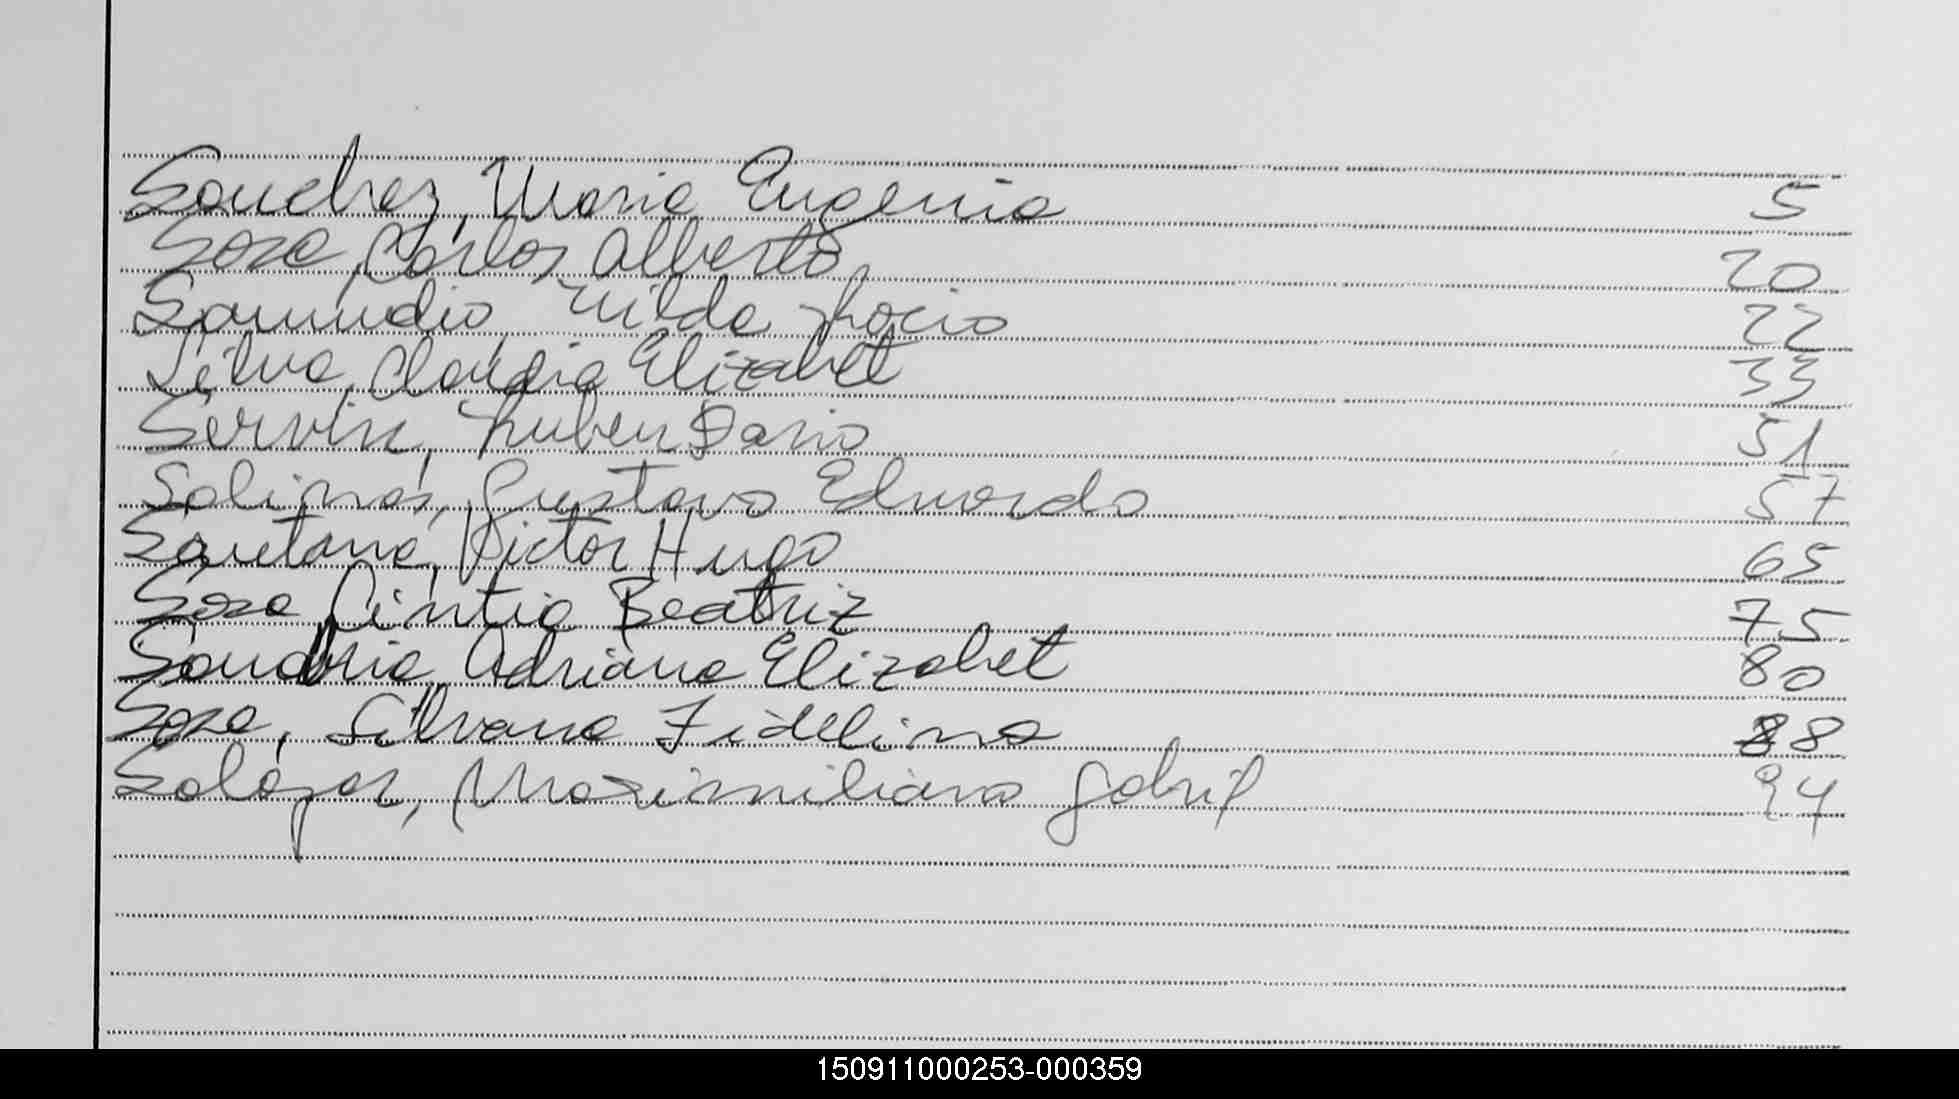 Sanchez, Maria Eugenia 5
Sosa, Carlos Alberto 20
Samudio Nilda Rocio 22
Silva, Claudia Elizabet 33
Servin, Ruben Dario 51
Salinas, Gustavo Eduardo 57
Santana, Victor Hugo 65
Sosa Cintia Beatriz 75
Sanabria, Adriana Elizabet 80
Sosa, Silvana Fidelina 88
Salazar, Maximiliano Gabril 94
150911000253-000359